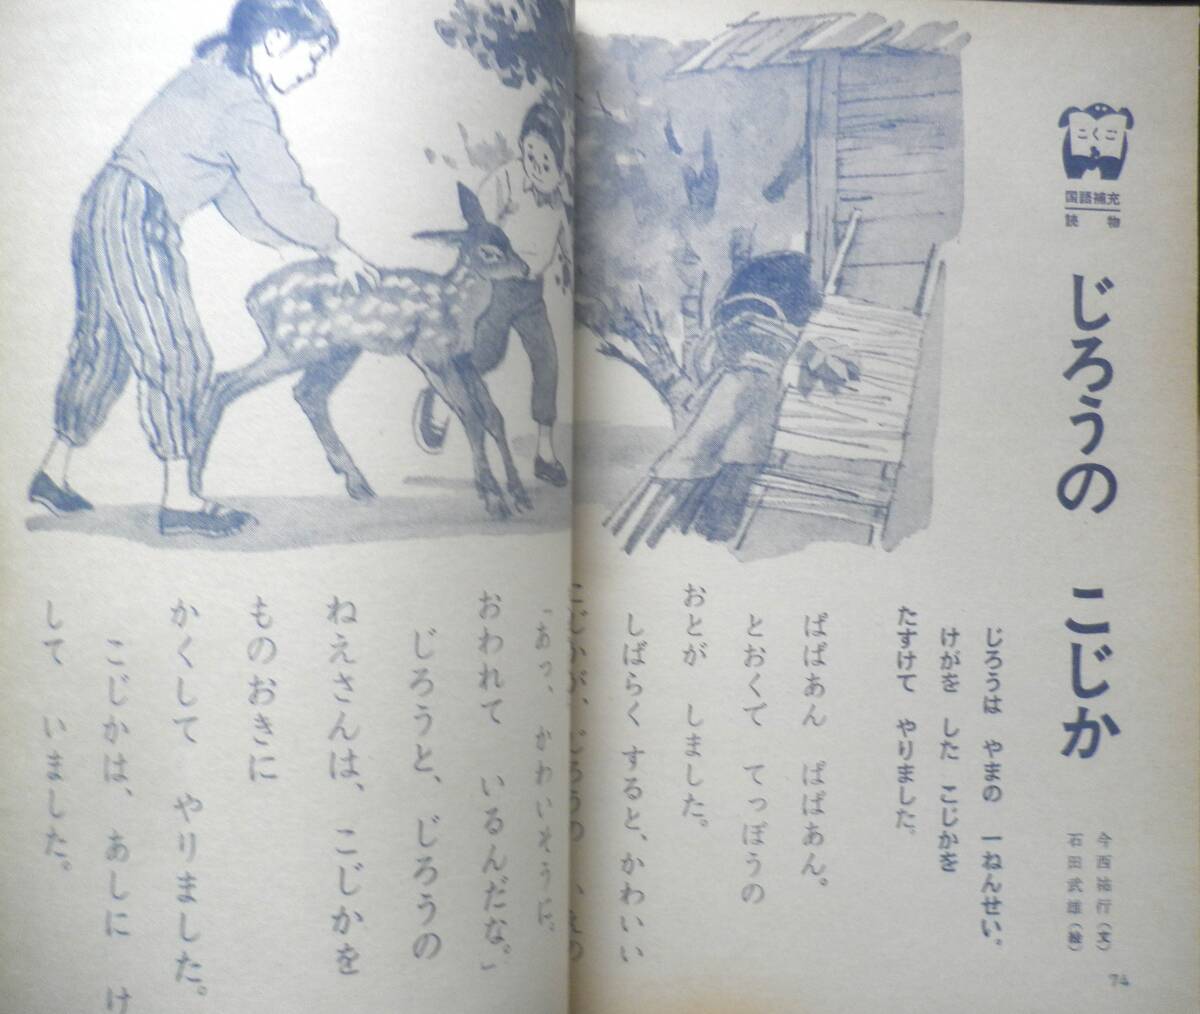 こくご
国語補充
読物
じろうの こじか
今西祐行（文）
石田武雄（絵）
じろうは やまの 一ねんせい。
けがを した こじかを
たすけて やりました。
ばばあん ばばあん。
とおくで てっぽうの
おとが しました。
しばらく すると、かわいい
こじかが、じろうの
「あっ、かわいそうに。
おわれて いるんだな。」
じろうと、じろうの
ねえさんは、こじかを
ものおきに
かくして やりました。
こじかは、あしに け
して いました。
74